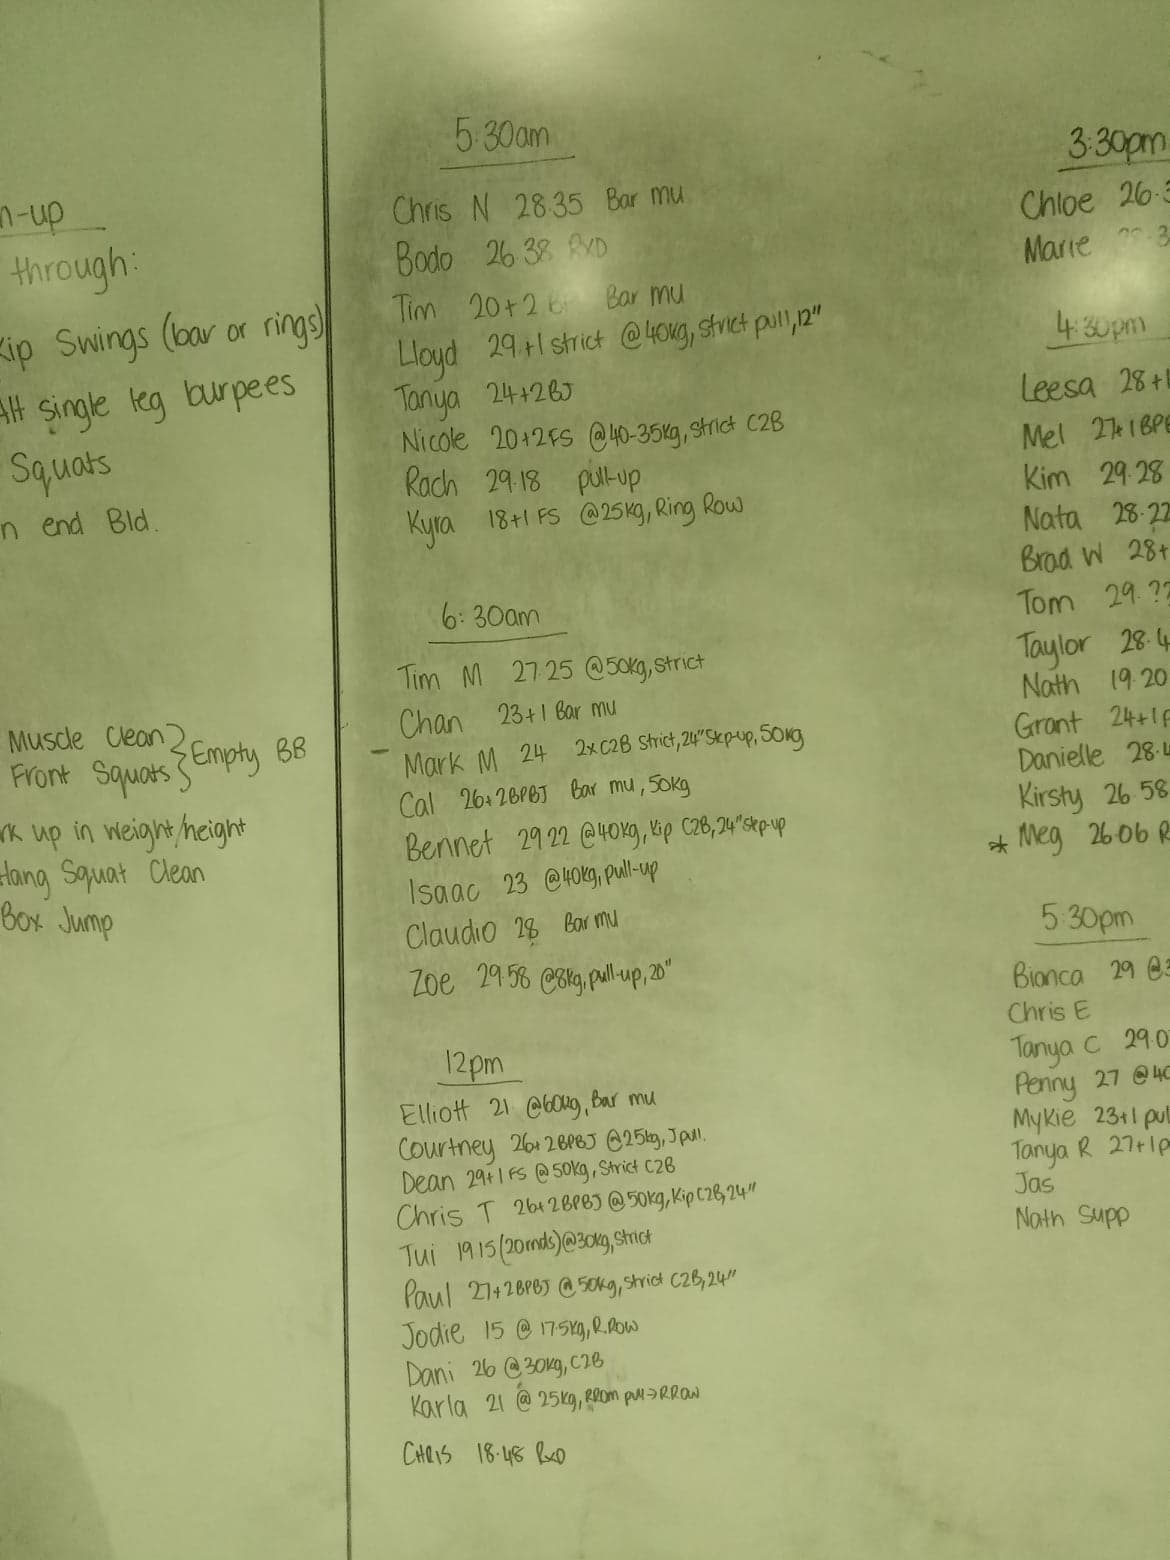 n-up
through:
Kip Swings (bar or rings)
Alt single leg burpees
Squats
n end Bld.
Muscle Clean
Front Squats } Empty BB
rk up in weight/height
Hang Squat Clean
Box Jump
5:30am
Chris N 28.35 Bar mu
Bodo 26.38 RXD
Tim 20+2 Bar mu
Lloyd 29+1 strict @40kg, strict pull, 12"
Tanya 24+2BJ
Nicole 20+2FS @40-35kg, strict C2B
Rach 29.18 pull-up
Kyra 18+1 FS @25kg, Ring Row
6:30am
Tim M 27.25 @50kg, strict
Chan 23+1 Bar mu
- Mark M 24 2xC2B strict, 24" step-up, 50kg
Cal 26+2BPBJ Bar mu, 50kg
Bennet 29.22 @40kg, Kip C2B, 24" step-up
Isaac 23 @40kg, pull-up
Claudio 28 Bar mu
Zoe 29.58 @8kg, pull-up, 20"
12pm
Elliott 21 @60kg, Bar mu
Courtney 26+2BPBJ @25kg, J pull.
Dean 29+1 FS @50kg, Strict C2B
Chris T 26+2BPBJ @50kg, Kip C2B, 24"
Tui 19.15 (20rnds) @30kg, strict
Paul 27+2BPBJ @50kg, strict C2B, 24"
Jodie 15 @ 17.5kg, R.Row
Dani 26 @30kg, C2B
Karla 21 @ 25kg, pull→R.Row
CHRIS 18.48 RxD
3:30pm
Chloe 26.3
Marie
4:30pm
Leesa 28+1
Mel 27+1BPB
Kim 29.28
Nata 28.22
Brad W 28+
Tom 29.??
Taylor 28.4
Nath 19.20
Grant 24+1
Danielle 28.4
Kirsty 26.58
* Meg 26.06 R
5:30pm
Bianca 29 @3
Chris E
Tanya C 29.0
Penny 27 @40
Mykie 23+1 pul
Tanya R 27+1p
Jas
Nath Supp